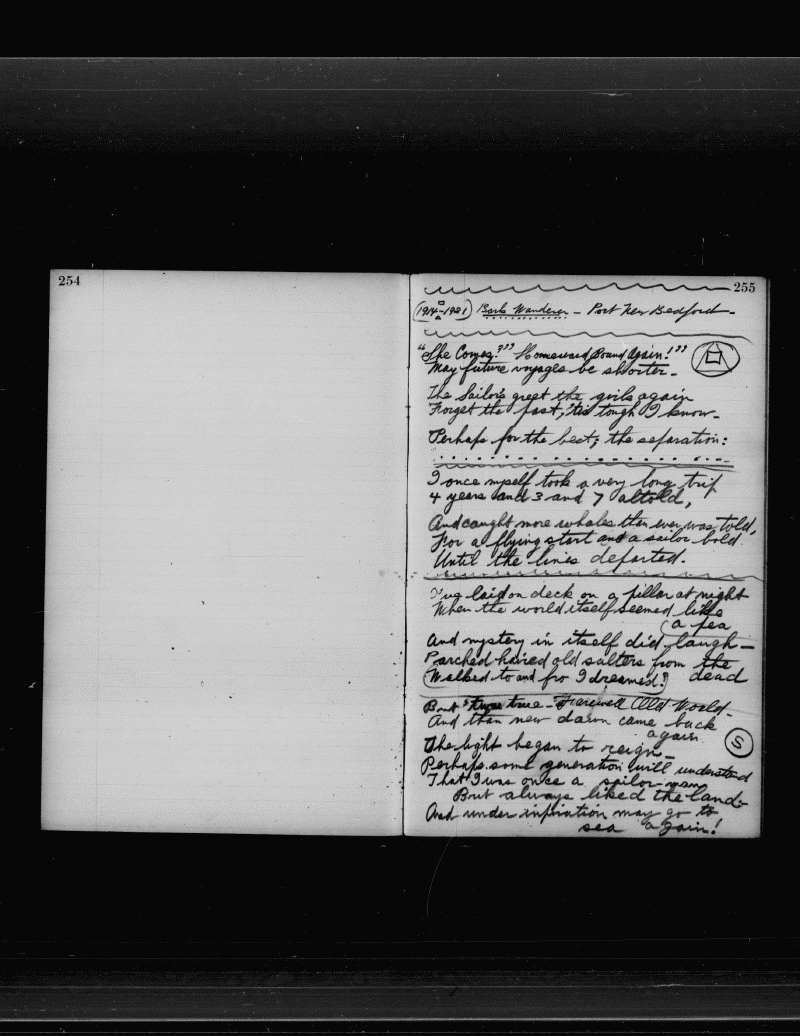 254
255
(1914-1921) Bark Wanderer - Port New Bedford -
"She Comes?" "Homeward Bound Again!"
May future voyages be shorter -
The Sailors greet the girls again
Forget the past, 'tis tough I know -
Perhaps for the best; the separation:
I once myself took a very long trip
4 years and 3 and 7 altold,
And caught more whales than ever was told,
For a flying start and a sailor bold
Until the lines departed.
I've laid on deck on a pillar at night
When the world itself seemed like
(a pea
And mystery in itself did laugh -
Parched haired old salters from the
(Walked to and fro I dreamed?) dead
But 'twas true - Farewell Old World -
And than new dawn came back
again
The light began to reign -
S
Perhaps some generation will understand
That I was once a sailor man
But always liked the land -
And under infiration may go to
sea again!